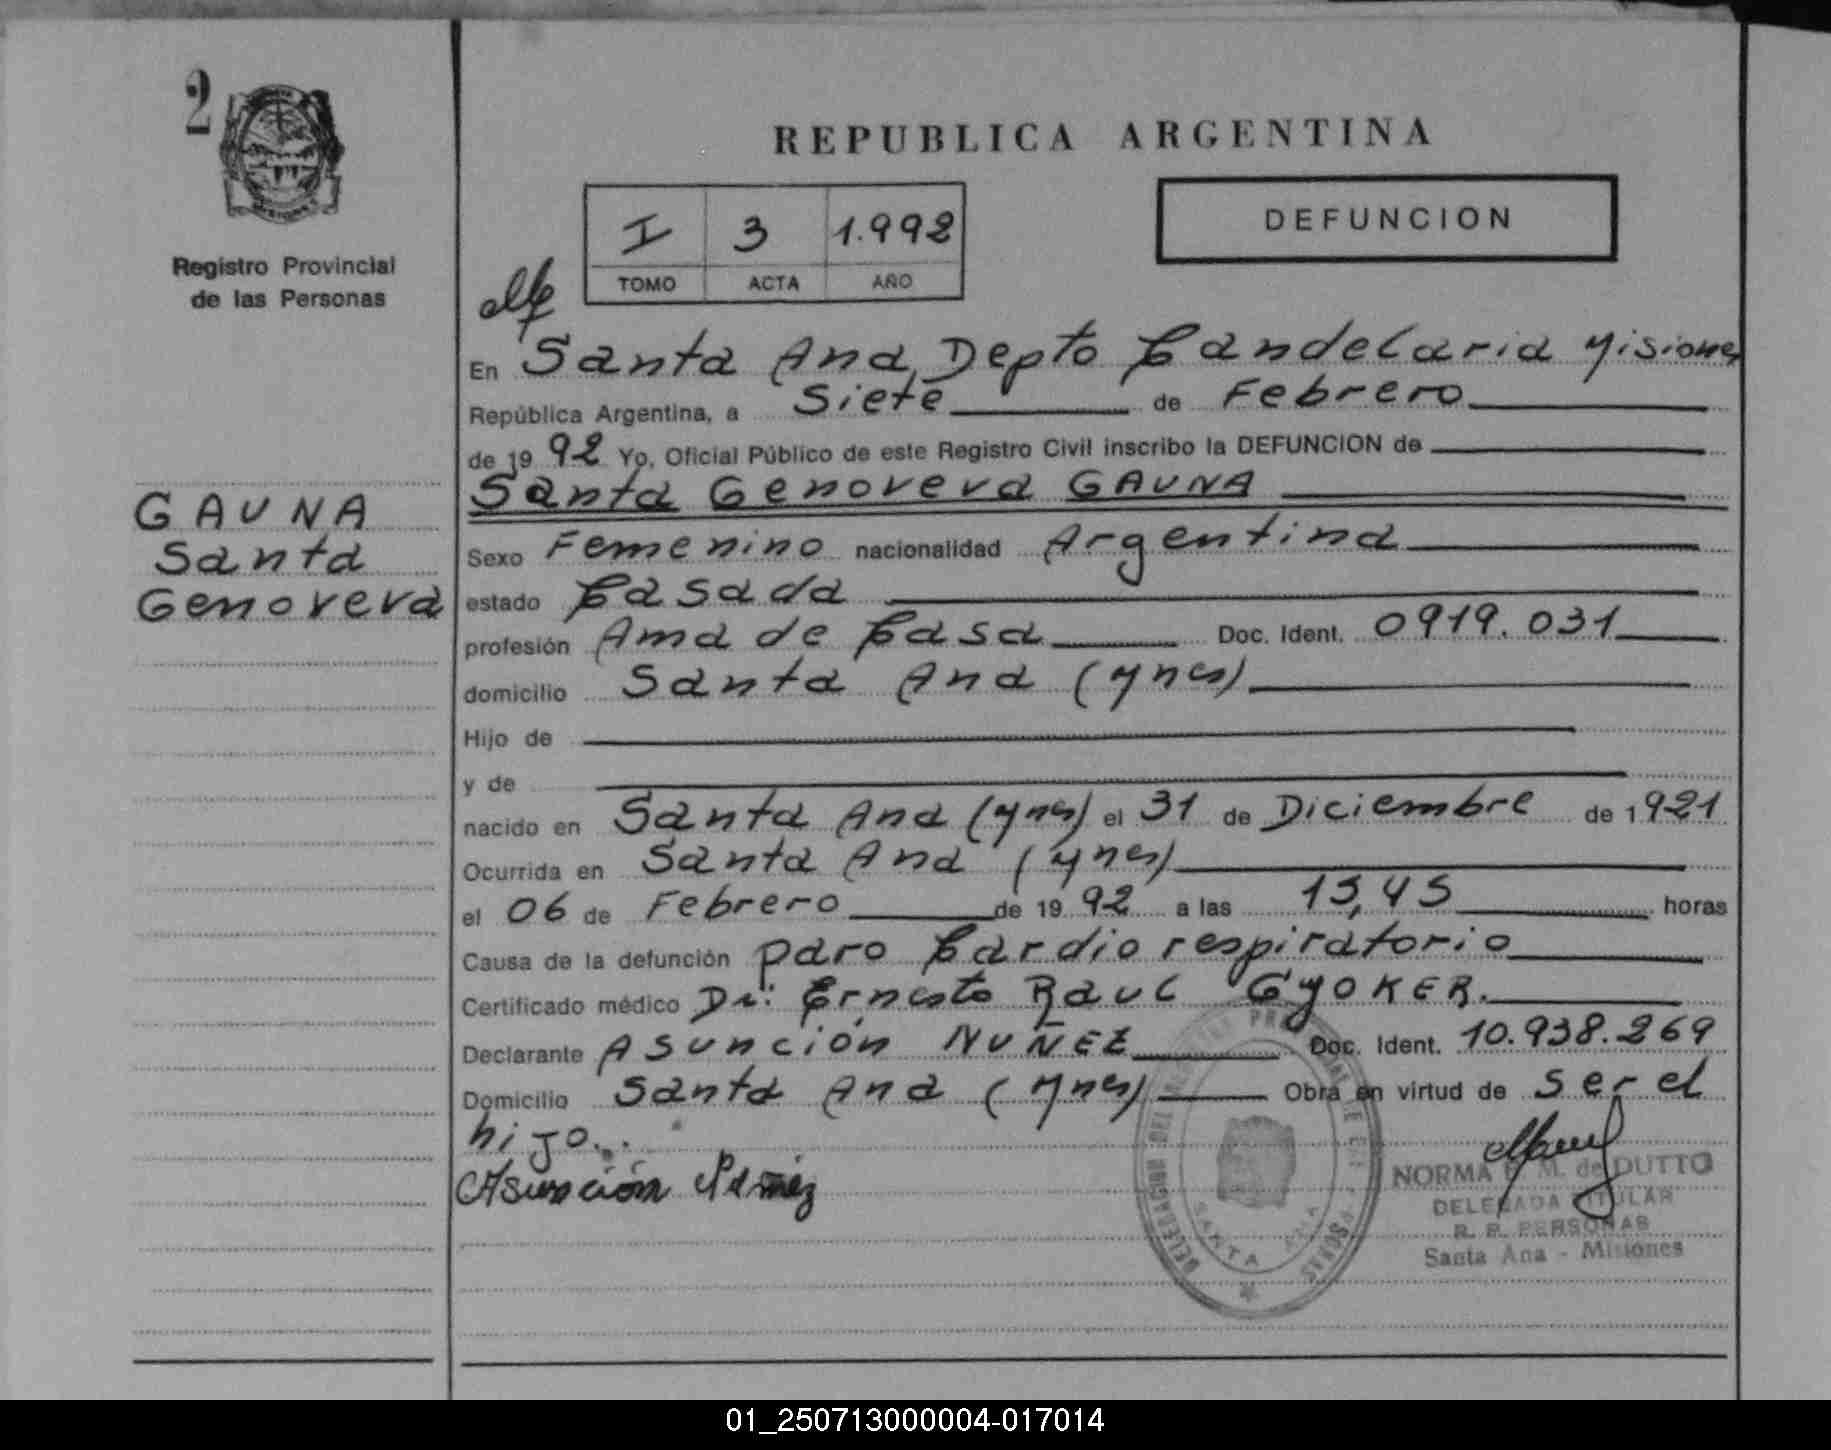 2
Registro Provincial
de las Personas
GAUNA
Santa
Genoveva
REPUBLICA ARGENTINA
I 3 1.992
TOMO ACTA AÑO
DEFUNCION
En Santa Ana Depto Candelaria Misiones
República Argentina, a Siete de Febrero
de 19 92 Yo, Oficial Público de este Registro Civil inscribo la DEFUNCION de
Santa Genoveva GAUNA
Sexo Femenino nacionalidad Argentina
estado Casada
profesión Ama de Casa Doc. Ident. 0919.031
domicilio Santa Ana (Mnes)
Hijo de
y de
nacido en Santa Ana (Mnes) el 31 de Diciembre de 1921
Ocurrida en Santa Ana (Mnes)
el 06 de Febrero de 19 92 a las 13,45 horas
Causa de la defunción paro Cardio respiratorio
Certificado médico Dr: Ernesto Raul GYOKER.
Declarante Asunción NUÑEZ Doc. Ident. 10.938.269
Domicilio Santa Ana (Mnes) Obra en virtud de ser el
hijo..
Asunción Nuñez
NORMA M. de DUTTO
DELEGADA TITULAR
R. P. PERSONAS
Santa Ana - Misiones
SANTA ANA
01_250713000004-017014